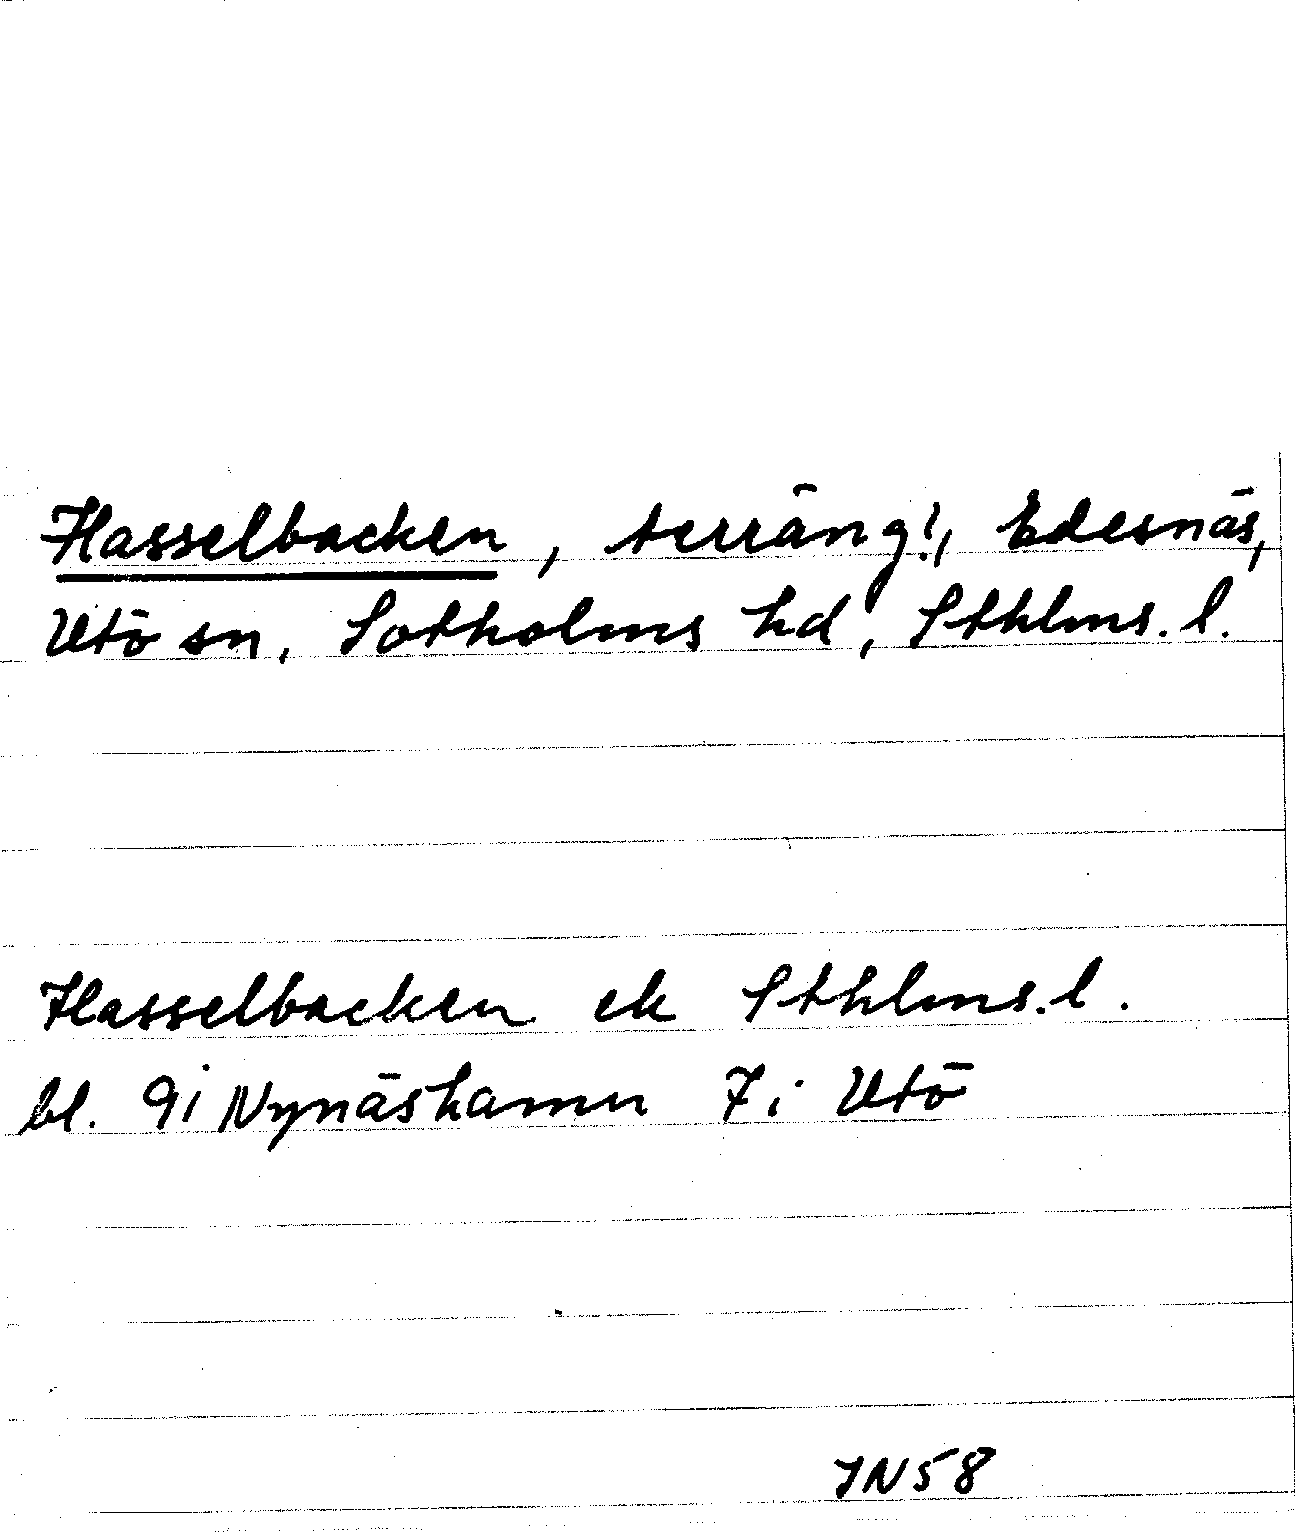 Hasselbacken, terräng!, Edesnäs,
Utö sn, Sotholms hd, Sthlms. l.
Hasselbacken ek Sthlms. l.
bl. 9i Nynäshamn 7i Utö
JN58